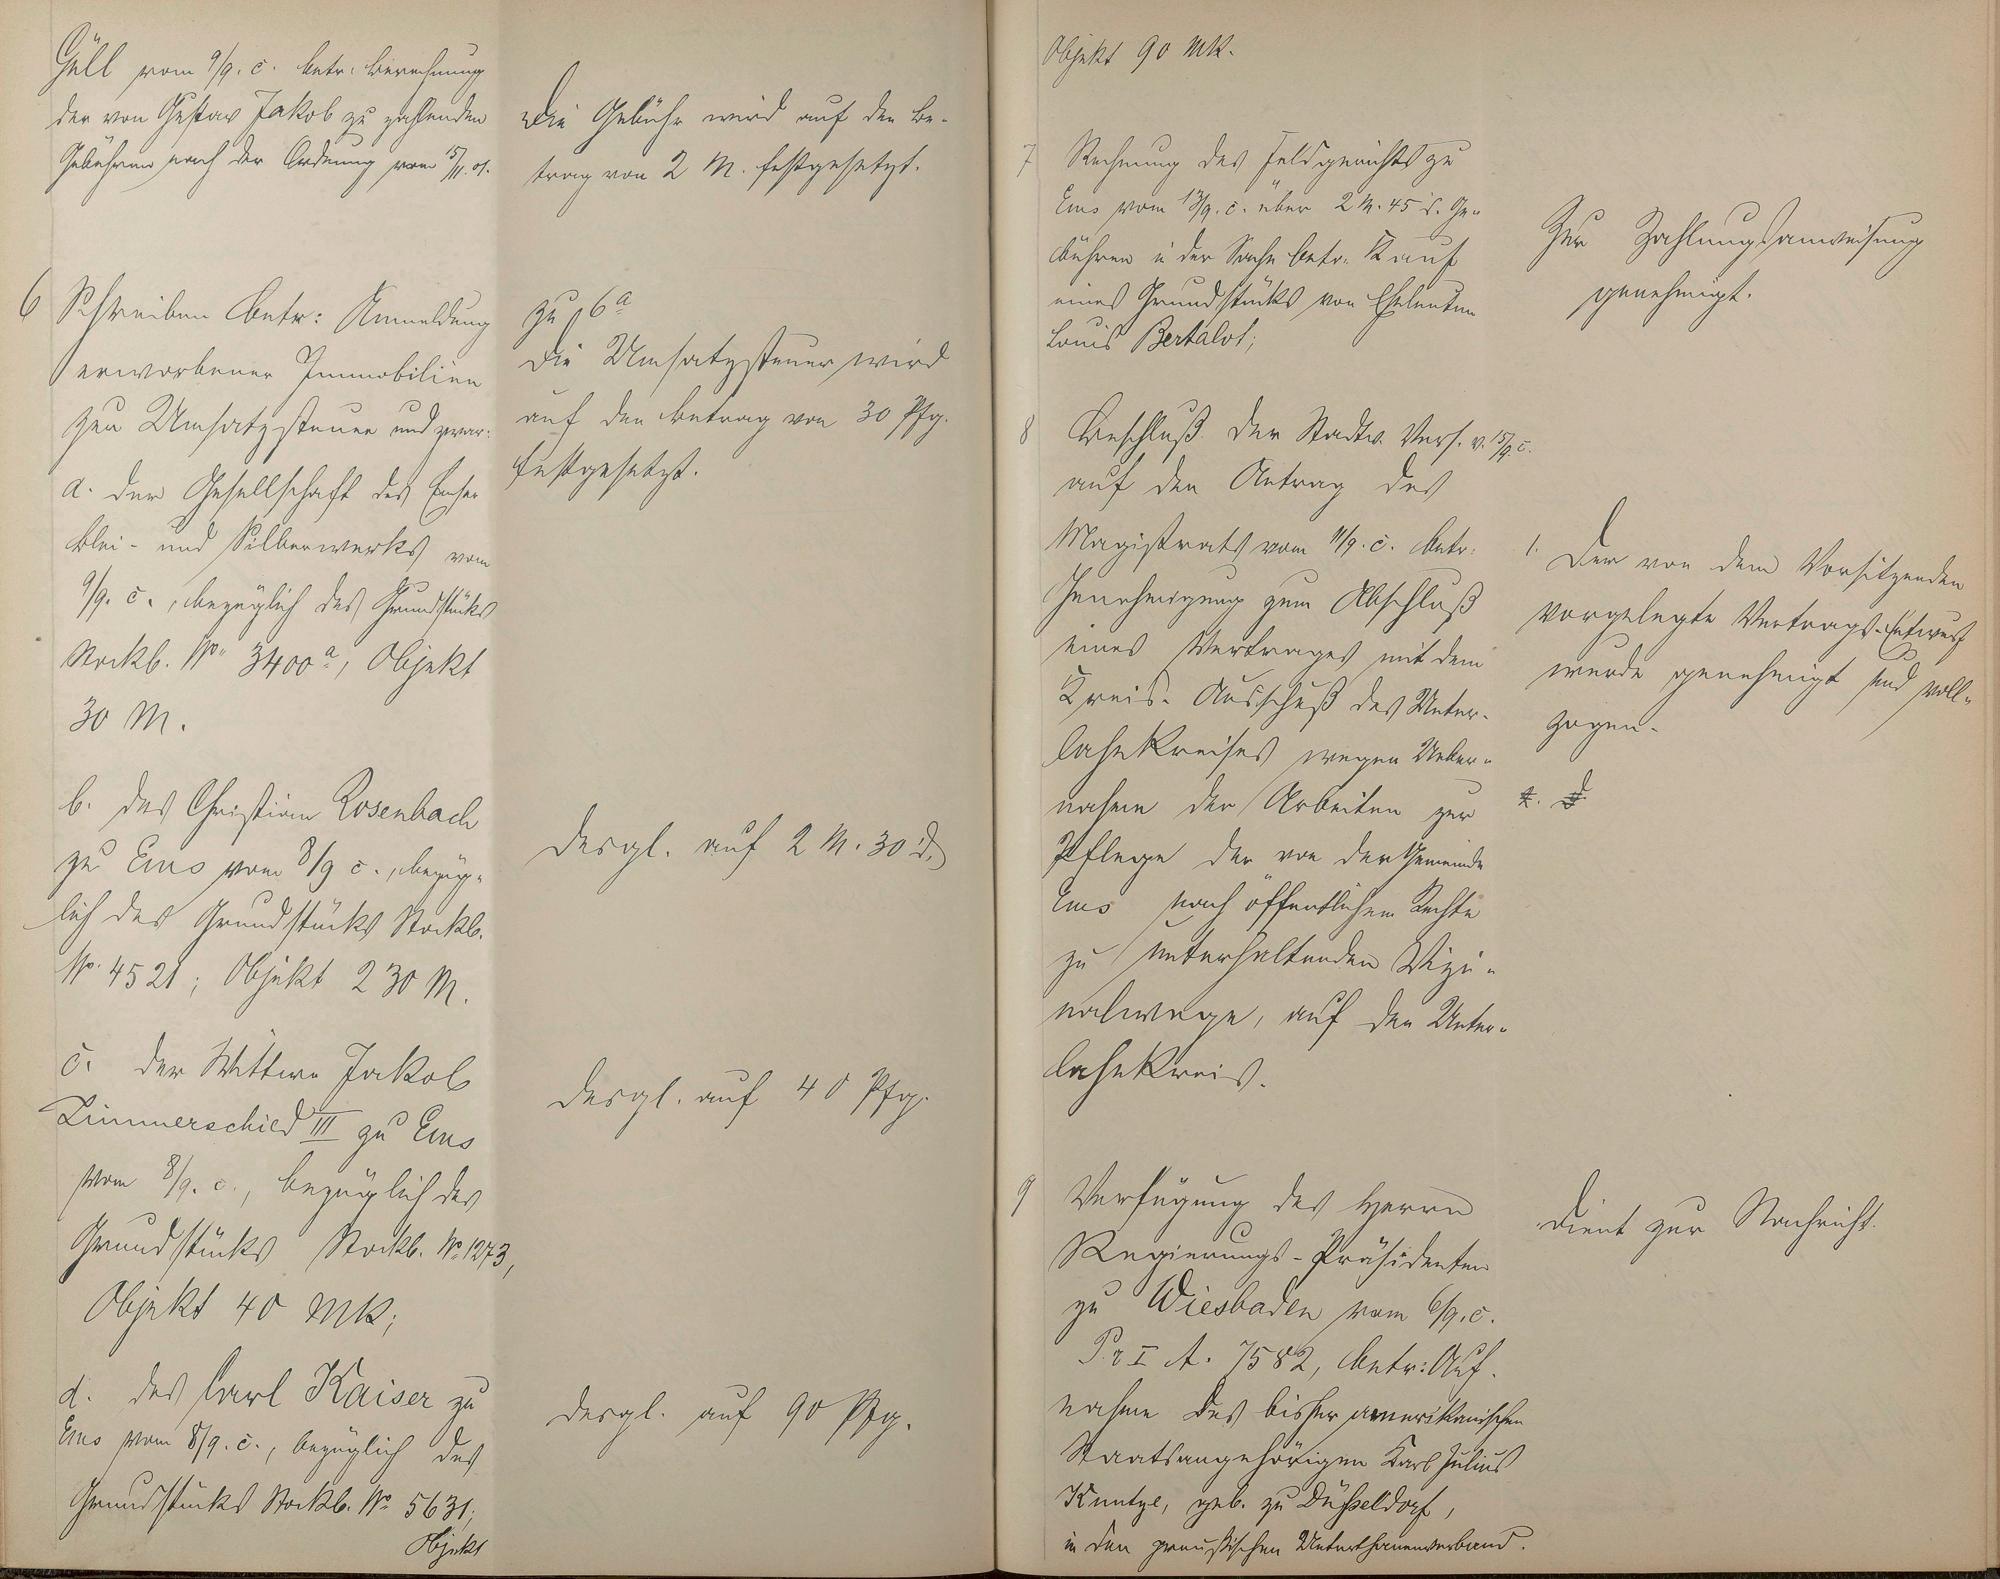 Göll vom 9/9. c. betr. Berechnung
der von Gustav Jakob zu zahlenden
Gebühren nach der Ordnung vom 15/11. 01.
Die Gebühr wird auf den Be-
trag von 2 M. festgesetzt.
6 Schreiben betr: Anmeldung
erworbener Immobilien
zur Umsatzsteuer und zwar:
a. der Gesellschaft des Emser
Blei- und Silberwerks vom
9/9. c., bezüglich des Grundstücks
Stockb. No 3400a, Objekt
30 M.
zu 6a
Die Umsatzsteuer wird
auf den Betrag von 30 Pfg.
festgesetzt.
b. des Christian Rosenbach
zu Ems vom 8/9 c., bezüg-
lich des Grundstücks Stockb.
No. 4521; Objekt 230 M.
desgl. auf 2 M. 30 d.
c. der Wittwe Jakob
Zimmerschied III zu Ems
vom 8/9. c., bezüglich des
Grundstücks Stockb. No 1273,
Objekt 40 MK;
desgl. auf 40 Pfg.
d. des Carl Kaiser zu
Ems vom 8/9. c., bezüglich des
Grundstücks Stockb. No 5631;
Objekt
desgl. auf 90 Pfg.
Objekt 90 MK.
7 Rechnung des Feldgerichts zu
Ems vom 13/9. c. über 2 M. 45 d. Ge-
bühren i der Sache betr. Kauf
eines Grundstücks von Eheleuten
Louis Bertalot;
Zur Zahlungsanweisung
genehmigt.
8 Beschluß der Stadtv. Vers. v. 15/9. c.
auf den Antrag des
Magistrats vom 11/9. c. betr.
Genehmigung zum Abschluß
eines Vertrages mit dem
Kreis-Ausschuß des Unter-
lahnkreises wegen Ueber-
nahme der Arbeiten zur
Pflege der von der Gemeinde
Ems nach öffentlichem Rechte
zu unterhaltenden Vizi-
nalwege, auf den Unter-
lahnkreis.
1. Der von dem Vorsitzenden
vorgelegte Vertrags-Entwurf
wurde genehmigt und voll-
zogen.
9 Verfügung des Herrn
Regierungs-Präsidenten
zu Wiesbaden vom 6/9. c.
Pr I A. 7582, betr: Auf-
nahme des bisher amerikanischen
Staatsangehörigen Karl Julius
Kuntze, geb. zu Düsseldorf,
in den preußischen Unterthanenverband.
Dient zur Nachricht.